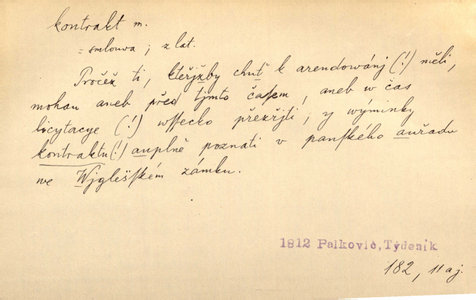 kontrakt m.
= smlouwa; z lat.
Pročež ti, kteřjžby chuť k arendowánj (!) měli,
mohau aneb před tjmto časem, aneb w čas
licytacye (!) wssecko přezřjti, y wýminky
kontraktu (!) auplně poznati v panského auřadu
we Wjglešském zámku.
1812 Palkovič, Týdeník
182, 11 aj.